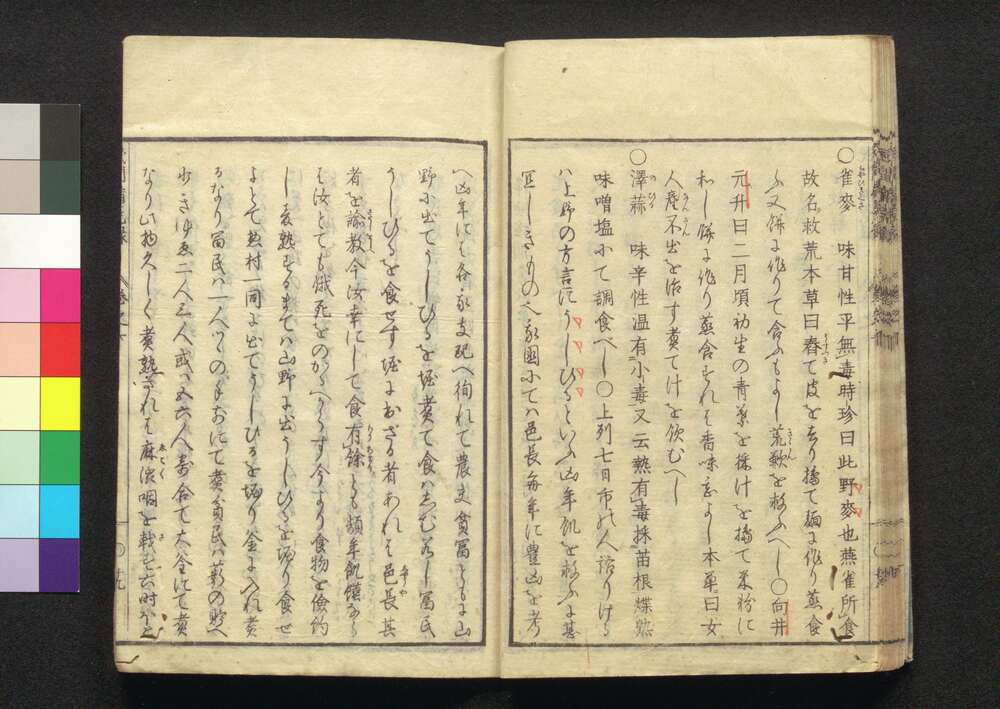 ○雀麥 味甘性平無毒時珍曰此野麥也燕雀所食
故名救荒本草曰舂て皮を去り搗て麺に作り蒸食
ふ又餅に作りて食ふもよし荒歉を救ふへし○向井
元升曰二月頃初生の青葉を採汁を搗て米粉に
和し餅に作り蒸食すれは香味よし本草曰女
人産不出を治す煮て汁を飲むへし
○澤蒜 味辛性温有小毒又云熱有毒採苗根煠熟
味噌塩にて調食べし○上列七日市の人語りける
ハ上野の方言にうしひるといふ凶年飢を救ふに甚
宜しきもの之家国にてハ邑長毎年に豊凶を考
へ凶年にハ各支配へ徇れて農夫貧冨ともに山
野に出てうしひるを堀煮て食ハしむ若し冨民
うしひるを食せす堀に出ざる者あれは邑長其
者を諭教今汝幸にして食有餘とも頻年飢饉なら
は汝とても餓死をのがるへからす今より食物を儉約
し麦熟するまてハ山野に出うしひるを堀り食せ
よとて惣村一同に出てうしひるを堀り釜に入れ煮
るなり冨民ハ一人つゝの手前にて煮貧民ハ薪の貯へ
少きゆゑ二人三人或ハ五六人寄合て大釜にて煮
なり此物久しく煮熟されは麻浚咽を戟す六時ほと